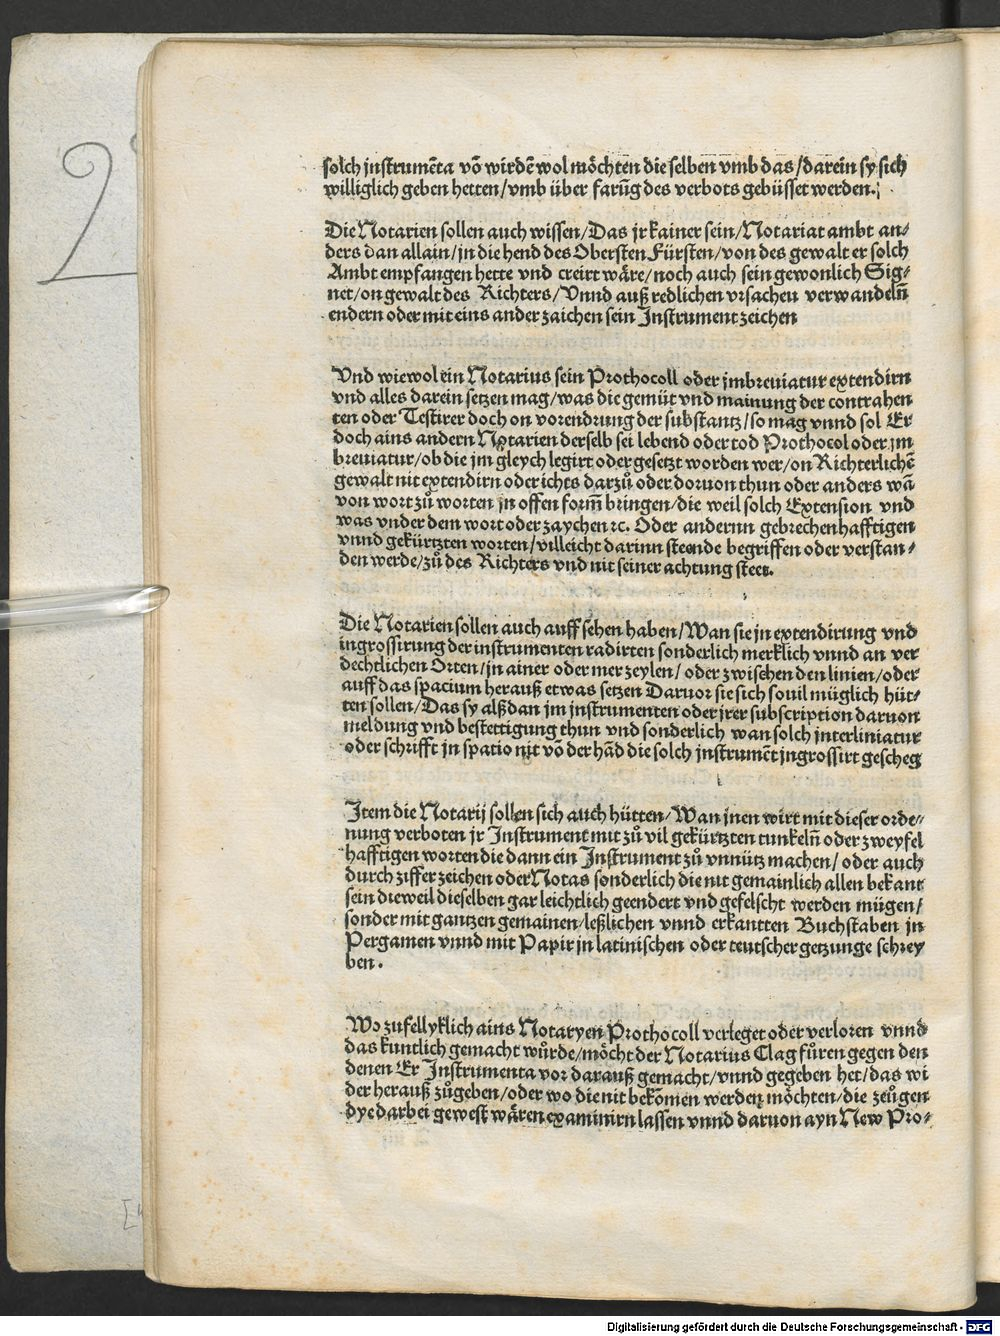 solch instrumēta vō wirdē wol möchten die selben vmb das/darein sy sich
williglich geben hetten/vmb über farūg des verbots gebüsset werden.
Die Notarien sollen auch wissen/Das jr kainer sein/Notariat ambt an-
ders dan allain/jn die hend des Obersten Fürsten/von des gewalt er solch
Ambt empfangen hette vnd creirt wäre/noch auch sein gewonlich Sig-
net/on gewalt des Richters/Vnnd auß redlichen vrsachen verwandeln̄
endern oder mit eins ander zaichen sein Instrument zeichen
Vnd wiewol ein Notarius sein Prothocoll oder jmbreuiatur extendirn
vnd alles darein setzen mag/was die gemüt vnd mainung der contrahen
ten oder Testirer doch on vorendrung der substantz/so mag vnnd sol Er
doch ains andern Notarien derselb sei lebend oder tod Prothocol oder jm
breuiatur/ob die jm gleych legirt oder gesetzt worden wer/on Richterlichē
gewalt nit extendirn oder ichts darzů oder doruon thun oder anders wā
von wort zů worten jn offen form̄ bringen/die weil solch Extension vnd
was vnder dem wort oder zaychen ꝛc. Oder andernn gebrechenhafftigen
vnnd gekürtzten worten/villeicht darinn steende begriffen oder verstan-
den werde/zů des Richters vnd nit seiner achtung steet.
Die Notarien sollen auch auff sehen haben/Wan sie jn extendirung vnd
ingrossirung der instrumenten radirten sonderlich mercklich vnnd an ver
dechtlichen Orten/jn ainer oder mer zeylen/oder zwischen den linien/oder
auff das spacium herauß etwas setzen Daruor sie sich souil müglich hüt-
ten sollen/Das sy alßdan jm jnstrumenten oder jrer subscription daruon
meldung vnd bestettigung thun vnd sonderlich wan solch jnterliniatur
oder schrifft jn spatio nit vō der hād die solch jnstrumēt jngrossirt gescheg
Item die Notarij sollen sich auch hütten/Wan jnen wirt mit dieser orde-
nung verboten jr Instrument mit zů vil gekürtzten tunkeln̄ oder zweyfel
hafftigen worten die dann ein Instrument zů vnnütz machen/oder auch
durch ziffer zeichen oder Notas sonderlich die nit gemainlich allen bekant
sein dieweil dieselben gar leichtlich geendert vnd gefelscht werden mügen/
sonder mit gantzen gemainen/leßlichen vnnd erkantten Buchstaben jn
Pergamen vnnd mit Papir jn latinischen oder teutscher getzunge schrey
ben.
Wo zufellyklich ains Notaryen Prothocoll verleget oder verloren vnnd
das kuntlich gemacht wůrde/möcht der Notarius Clag fůren gegen den
denen Er Instrumenta vor darauß gemacht/vnnd gegeben het/das wi
der herauß zůgeben/oder wo die nit bekōmen werden möchten/die zeůgen
dye darbei gewest wären examinirn lassen vnnd daruon ayn New Pro-
Digitalisierung gefördert durch die Deutsche Forschungsgemeinschaft - DFG